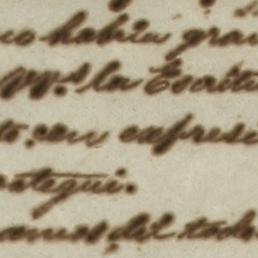 no habia gran
M.s la Escritu
to. con expresi
ostegui.
amos del todo